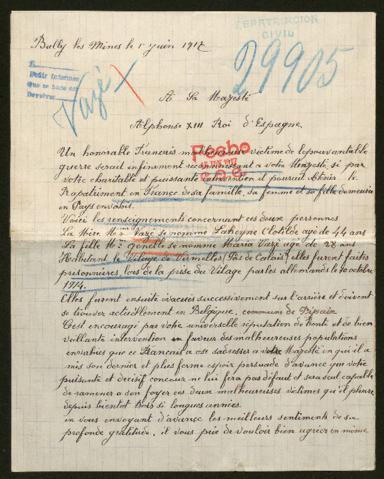 Bully les Mines le 1er juin 1917
REPATRIACION
CIVIL
29905
Vazé
A Sa Majesté
Alphonse XIII Roi d'Espagne.
Fecho
1917
Un honorable Francais malheureuse victime de l'épouvantable
guerre serait infiniment reconnaissant a votre Majesté si par
votre charitable et puissante intervention il pourait obtenir le
Rapatriement en France de sa famille, sa femme et sa fille demeurée
en Pays envahis.
Voici les renseignements concernant ces deux personnes
La Mère Mme Vazé se nomme Laheyne Clotilde agé de 44 ans
La fille Mme se nomme Maria Vazé agé de 28 ans
Habitant le Village de Vermelles (Pas de Calais) elles furent faits
prisonnières lors de la prise du Village par les allemands le 10 octobre
1914.
Elles furent ensuite évacuées successivement sur l'arrière et doivent
se trouver actuellement en Belgique, commune de
C'est encouragé par votre universelle réputation de bonté et de bien
veillante intervention en faveur des malheureuses populations
envahies que ce Francais a osé s'adresser a votre Majesté en qui il a
mis son dernier et plus ferme espoir persuadé d'avance que votre
puissante et decisif concours ne lui fera pas défaut et sera seul capable
de ramener a son foyer ces deux malheureuses victimes qu'il pleure
depuis bientot trois si longues années.
en vous envoyant d'avance les meilleurs sentiments de sa
profonde gratitude, il vous prie de vouloir bien agréer en même